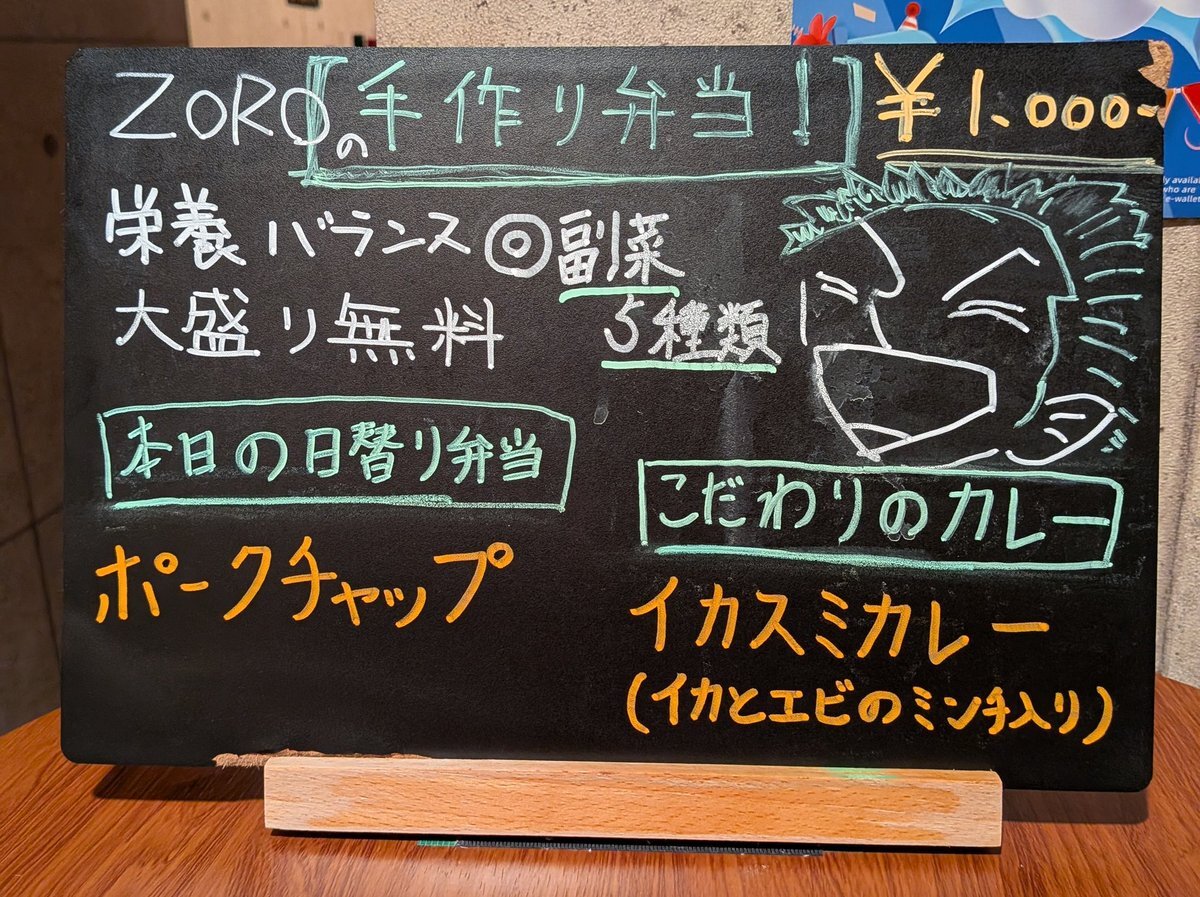 ZOROの[手作り弁当!] ¥1.000-
栄養バランス◎副菜
大盛り無料 5種類
本日の日替り弁当
ポークチャップ
こだわりのカレー
イカスミカレー
(イカとエビのミンチ入り)